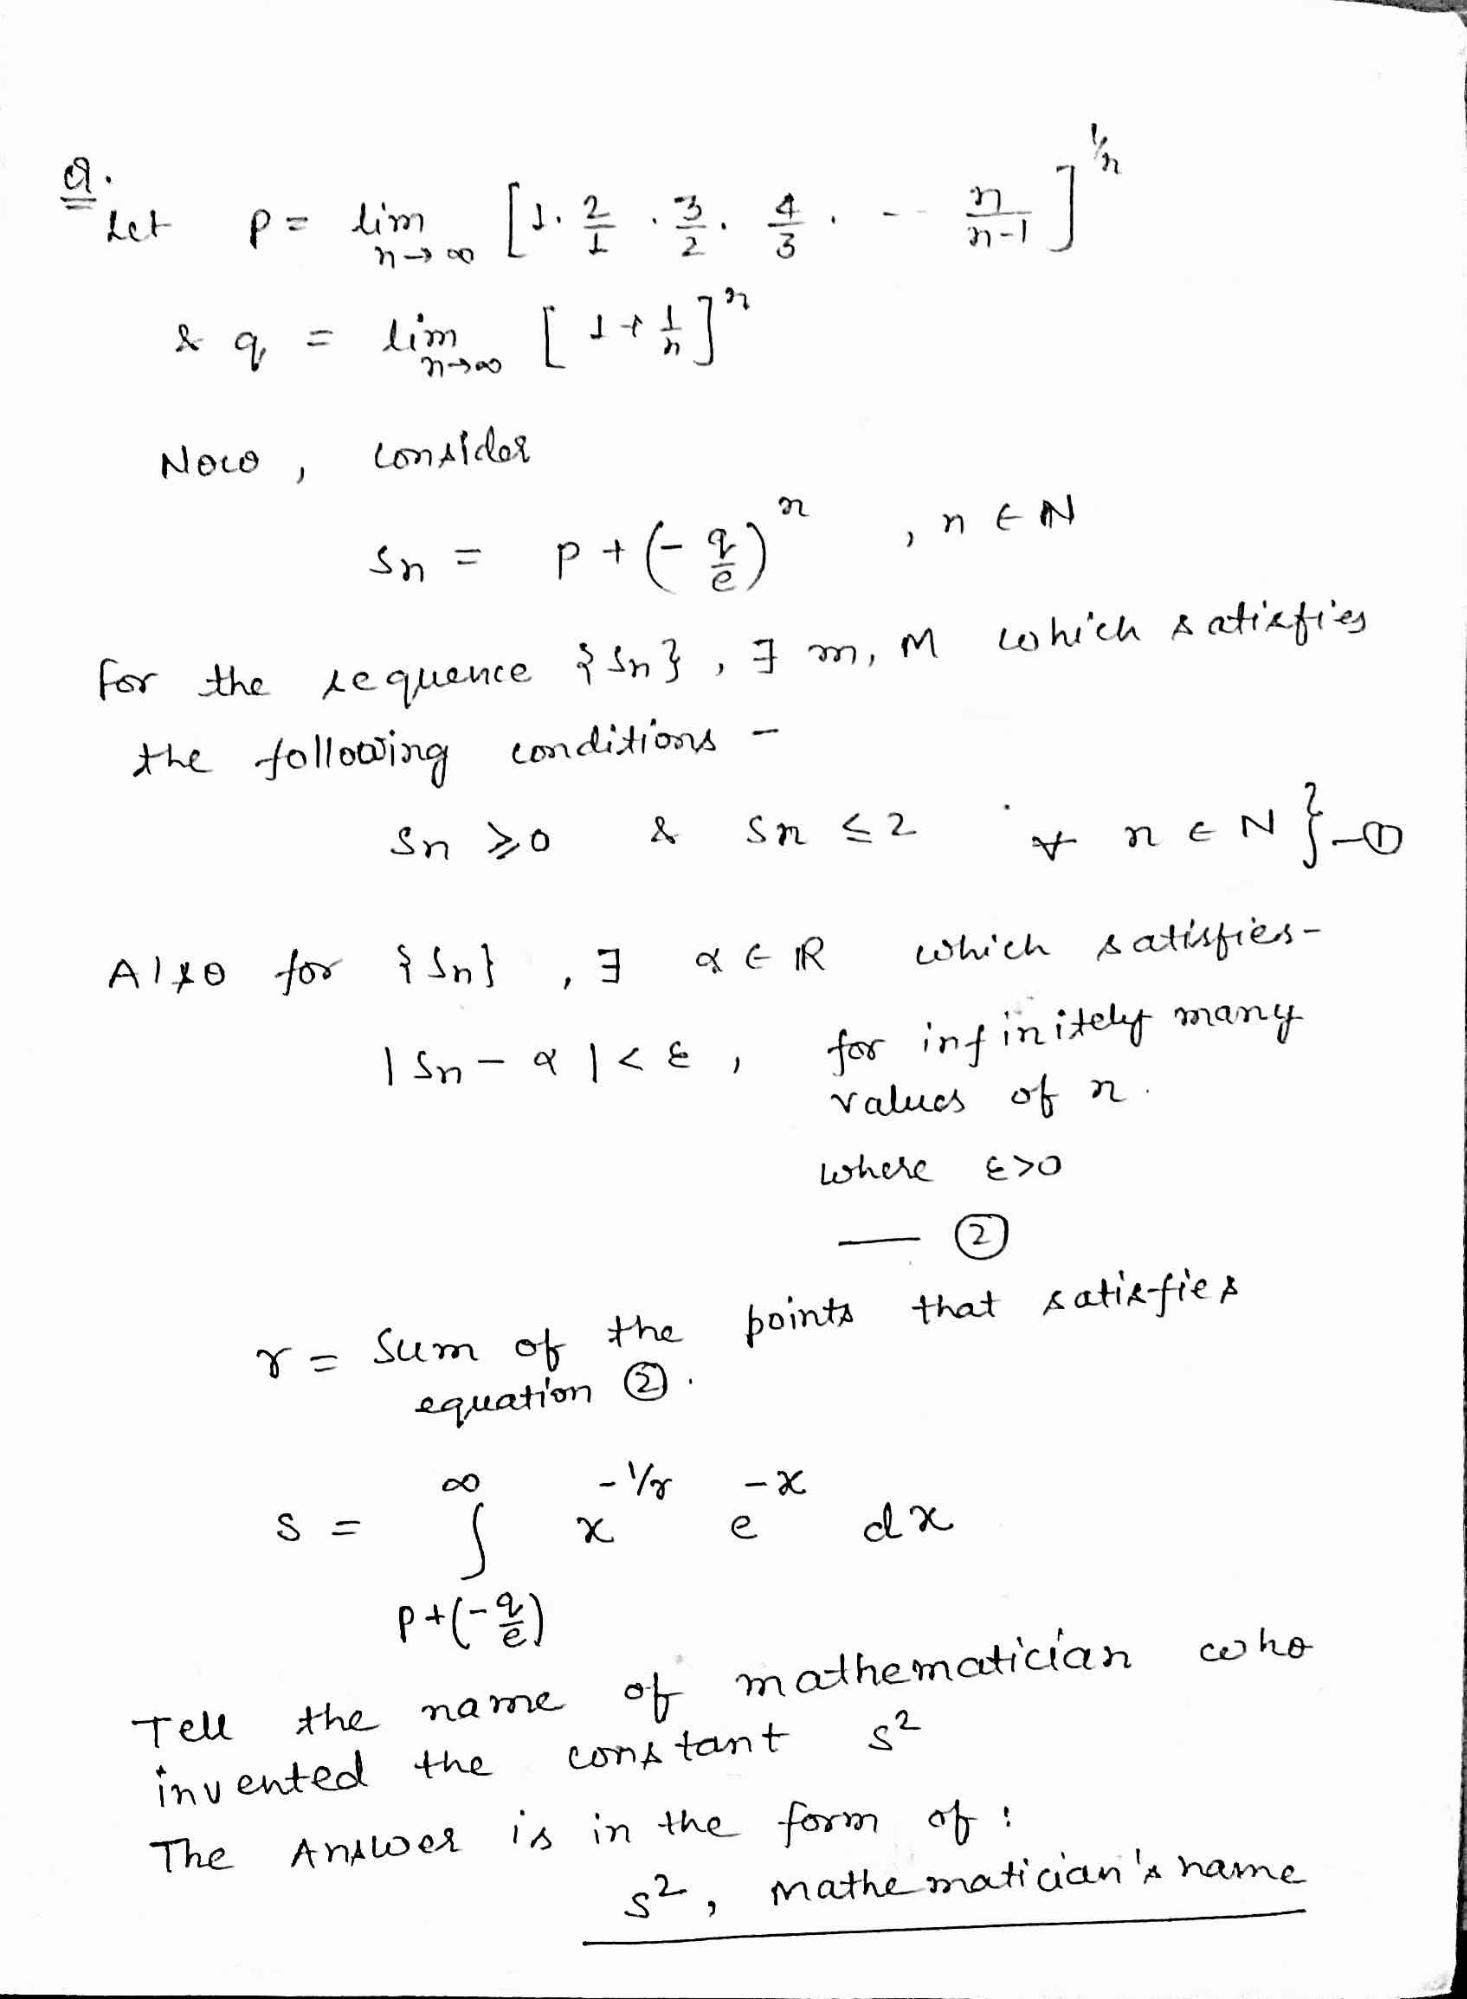 Q.
Let p = lim n→∞ [1. 2/1 . 3/2 . 4/3 . -- n/n-1]^1/n
& q = lim n→∞ [1 + 1/n]^n
Now , consider
Sn = p + (- q/e)^n , n ∈ N
For the sequence {Sn} , ∃ m, M which satisfies
the following conditions -
Sn ≥ 0 & Sn ≤ 2 ∀ n ∈ N } - ①
Also for {Sn} , ∃ α ∈ ℝ which satisfies-
| Sn - α | < ε , for infinitely many
values of n .
where ε>0
— ②
r = Sum of the points that satisfies
equation ② .
s = ∫_{p+(-q/e)}^{∞} x^{-1/r} e^{-x} dx
Tell the name of mathematician who
invented the constant s²
The Answer is in the form of :
s² , Mathematician's name